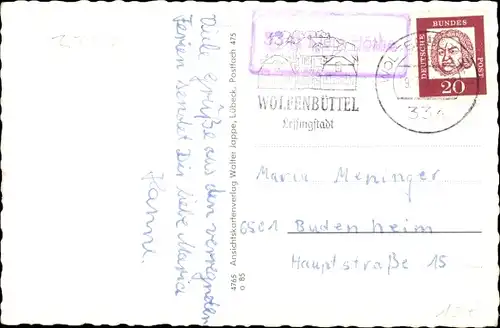 Viele Grüße aus den verregneten
Ferien sendet Dir liebe Maria
Hanne.
4765 Ansichtskartenverlag Walter Jappe, Lübeck, Postfach 475
o 85
334
WOLFENBÜTTEL
Lessingstadt
334
DEUTSCHE BUNDES POST
20
Maria Meninger
6501 Budenheim
Hauptstraße 15